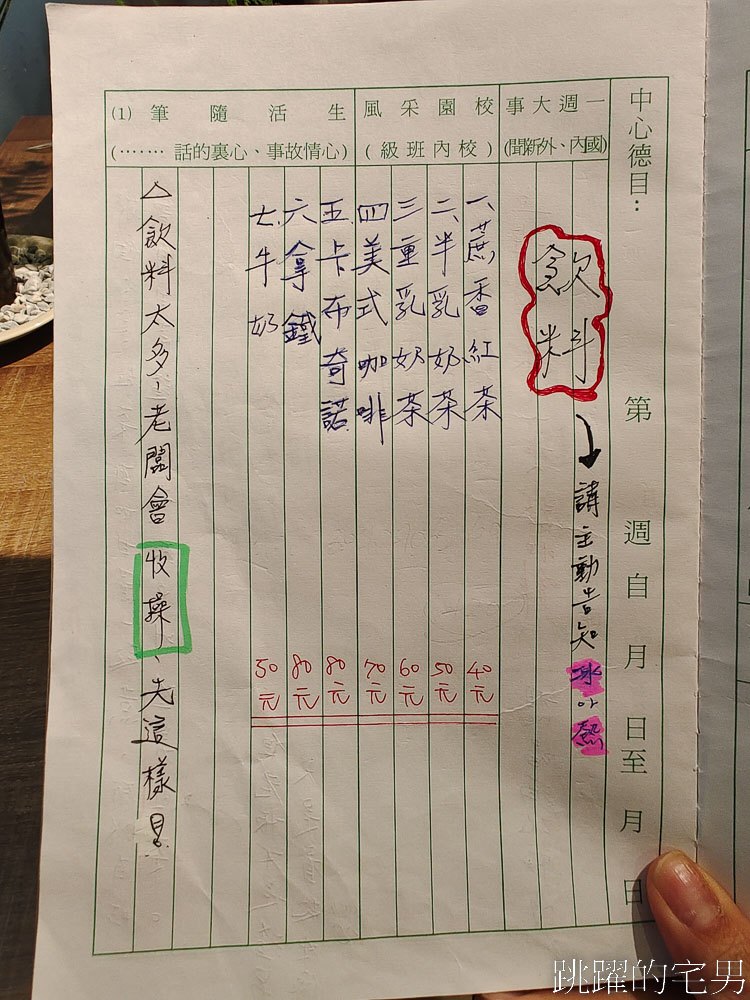 中心德目：　第　週自　月　日至　月　日
一週大事
(國內、外新聞)
飲料
→請主動告知冰or熱
校園采風
(校內班級)
一、蔗香紅茶 40元
二、半乳奶茶 50元
三重乳奶茶 60元
四美式咖啡 70元
五.卡布奇諾 80元
六拿鐵 80元
七.牛奶 50元
生活隨筆 (1)
(心情故事、心裏的話……)
△飲料太多，老闆會收操、先這樣
跳躍的宅男